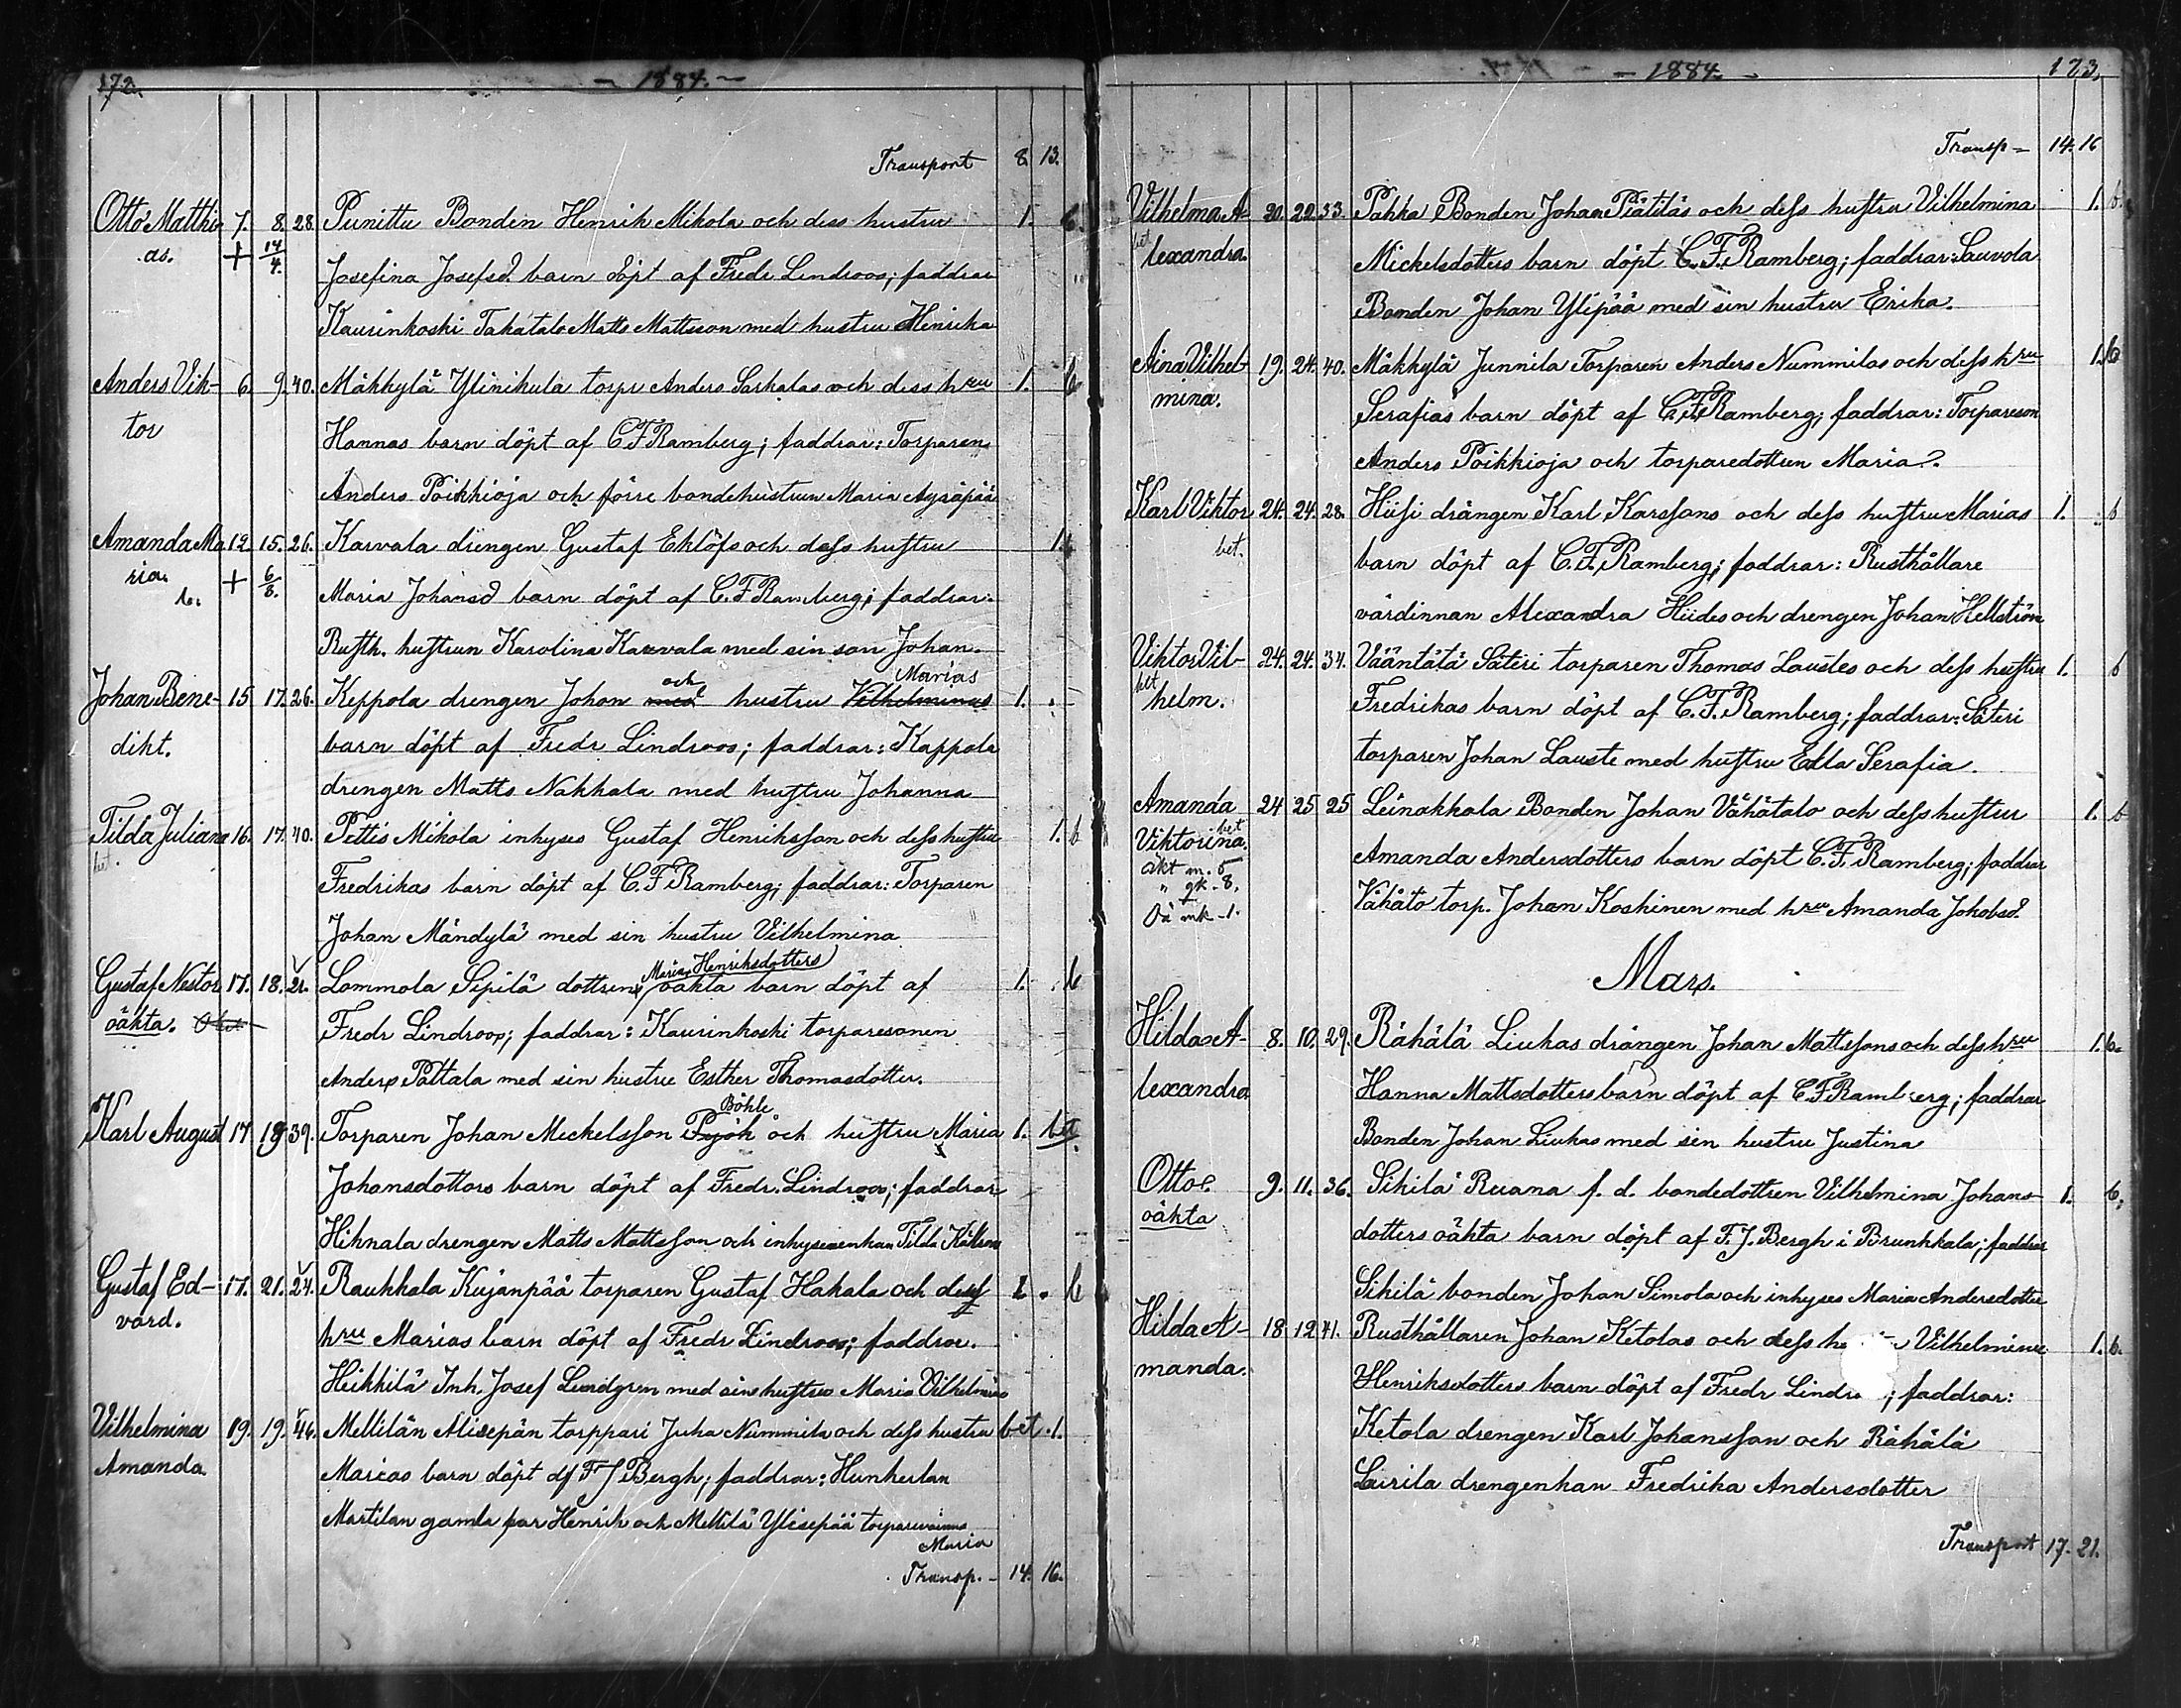 172.
- 1884. -
Transport 8. 13.
Otto Matthi- 7. 8. 28. Punittu Bonden Henrik Mikola och dess hustru 1. b.
as. + 14/4. Josefina Josefsd. barn döpt af Fredr Lindroos; faddrar
Kaurinkoski Takatalo Matts Mattsson med hustru Henrika
Anders Vik- 6. 9. 40. Mäkkylä Ylinikula torpr Anders Sarkalas och dess hru 1. b
tor Hannas barn döpt af C F Ramberg; faddrar: Torparen
Anders Poikkioja och förre bondehustrun Maria Ayräpää
Amanda Ma 12. 15. 26. Karvala drengen Gustaf Eklöfs och dess hustru 1.
ria. b. + 6/8. Maria Johansd barn döpt af C. F Ramberg; faddrar.
Rusth. hustrun Karolina Karvala med sin son Johan.
Marias
Johan Bene- 15 17. 26. Keppola drengen Johan och med hustru Vilhelminas 1. -
dikt. barn döpt af Fredr Lindroos; faddrar: Kappola
drengen Matts Nakkala med hustru Johanna
Tilda Juliana 16. 17. 40. Pettis Mikola inhyses Gustaf Henriksson och dess hustru 1. b
bet. Fredrikas barn döpt af C. F Ramberg; faddrar: Torparen
Johan Mändylä med sin hustru Vilhelmina
Maria Henriksdotters
Gustaf Nestor 17. 18. 21. Lommola Sipilä dottrens oäkta barn döpt af 1. b
oäkta. Fredr Lindroos; faddrar: Kaurinkoski torparesonen
Anders Pättala med sin hustru Esther Thomasdotter.
Böhle
Karl August 17 18 39. Torparen Johan Mickelsson och hustru Maria 1. bet
Johansdotters barn döpt af Fredr. Lindroos; faddrar
Hihnala drengen Matts Mattsson och inhysesenkan Tilda Källman
Gustaf Ed- 17. 21. 24. Raukkala Kujanpää torparen Gustaf Hakala och dess 1. b
vard. hru Marias barn döpt af Fredr Lindroos; faddrar.
Heikkilä Inh. Josef Lundgren med sin hustru Maria Vilhelmina
Vilhelmina 19. 19. 46. Mellilän Alisepän torppari Juha Nummila och dess hustru bet. 1.
Amanda. Marias barn döpt af F J Bergh; faddrar: Hunkerlan
Martilan gamla far Henrik och Mellilä Ylisepää
Maria
Transp. - 14. 16.
- 1884. -
173.
Transp - 14. 16
Vilhelma A- 20. 22. 33. Pahka Bonden Johan Piätiläs och dess hustru Vilhelmina 1. b.
bet lexandra. Mickelsdotters barn döpt C. F. Ramberg; faddrar: Sauvola
Bonden Johan Ylipää med sin hustru Erika.
Aina Vilhel- 19. 24. 40. Mäkkylä Junnila Torparen Anders Nummilas och dess hru 1. b
mina. Serafias barn döpt af C. F. Ramberg; faddrar: Torpareson
Anders Poikkioja och torparedottren Maria ?.
Karl Viktor 24. 24. 28. Hiisi drängen Karl Karssons och dess hustru Marias 1. b
bet. barn döpt af C. F. Ramberg; faddrar: Rusthållare
värdinnan Alexandra Hiides och drengen Johan Hellström
Viktor Vil- 24. 24. 34. Vääntälä Säteri torparen Thomas Laustes och dess hustru 1. b
bet helm. Fredrikas barn döpt af C. F. Ramberg; faddrar: Säteri
torparen Johan Lauste med hustru Edla Serafia.
Amanda 24 25 25 Leinakkala Bonden Johan Vähätalo och dess hustru 1. b
Viktorina. bet Amanda Andersdotters barn döpt C. F. Ramberg; faddrar
äkt m. 5
" qk - 8. Vähäto torp. Johan Koskinen med hru Amanda Jakobsd.
Oä mk - 1.
Mars.
Hilda A- 8. 10. 29. Rähälä Liukas drängen Johan Mattssons och dess hru 1. b.
lexandra. Hanna Mattsdotters barn döpt af C. F Ramberg; faddrar
Bonden Johan Liukas med sin hustru Justina
Otto. 9. 11. 36. Sikilä Ruana f. d. bondedottren Vilhelmina Johans- 1. b.
oäkta dotters oäkta barn döpt af F. J. Bergh i Prunkkala; faddrar
Sikilä bonden Johan Simola och inhyses Maria Andersdotter
Hilda A- 18 19 41. Rusthållaren Johan Ketolas och dess Vilhelmina 1. b.
manda. Henriksdotters barn döpt af Fredr ; faddrar:
Ketola drengen Karl Johansson och Rähälä
Lairila drengenkan Fredrika Andersdotter
Transport 17. 21.